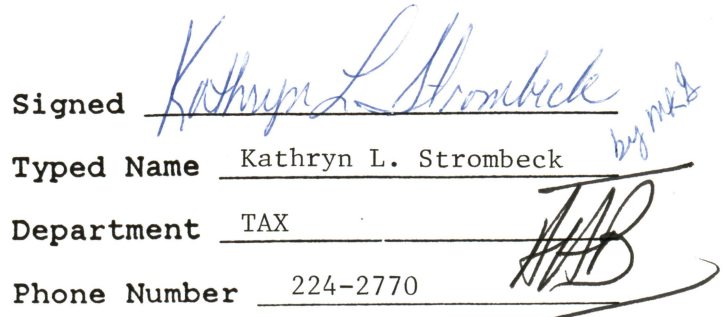 Signed Kathryn L. Strombeck
Typed Name Kathryn L. Strombeck
Department TAX
Phone Number 224-2770